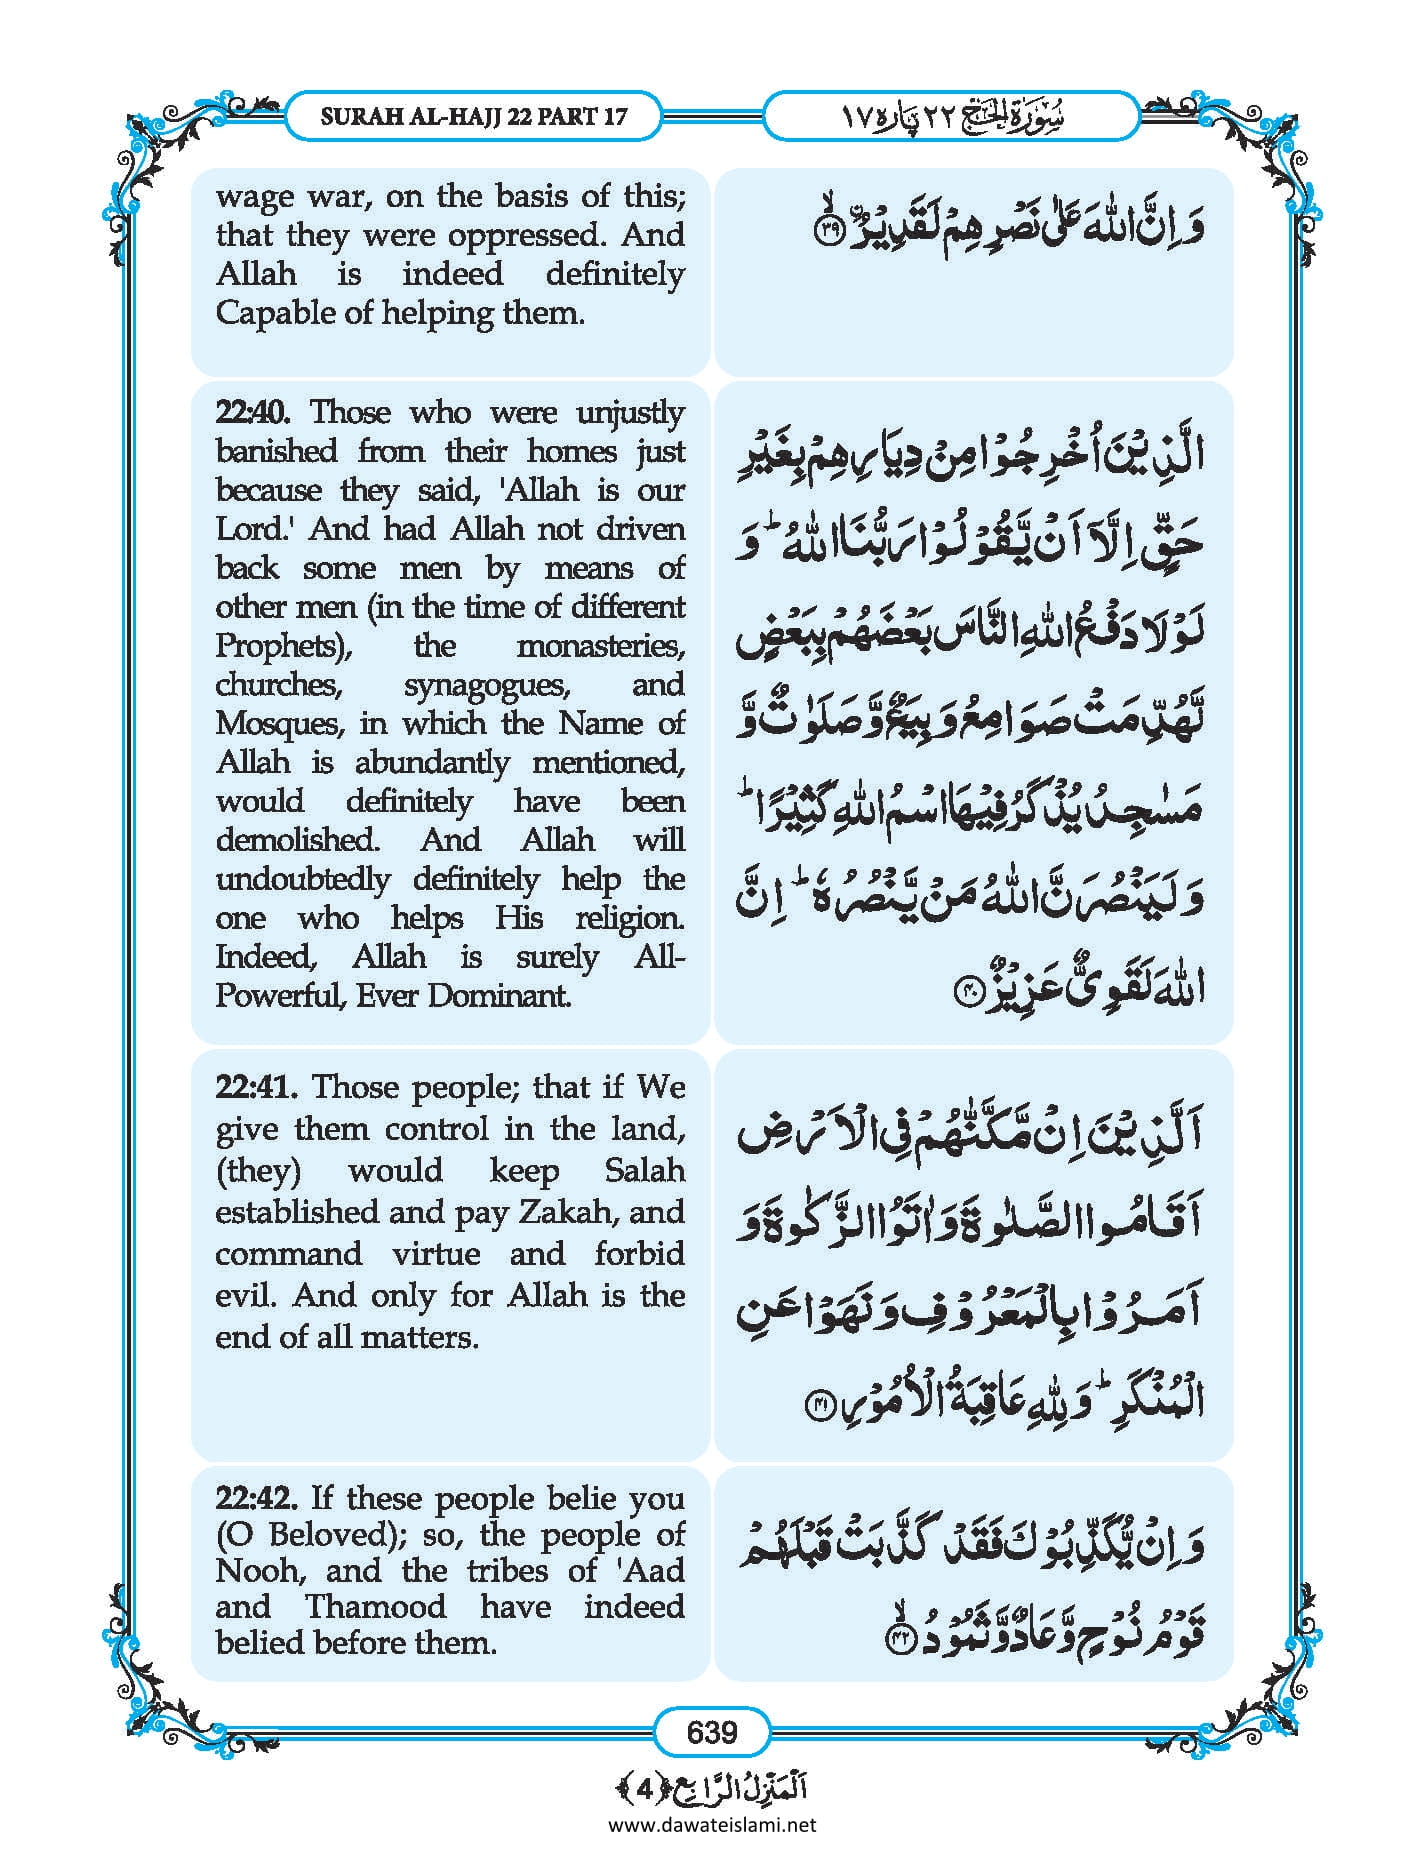 SURAH AL-HAJJ 22 PART 17
سُوْرَةُ الْحَجّ ٢٢ پارہ ١٧
wage war, on the basis of this;
that they were oppressed. And
Allah is indeed definitely
Capable of helping them.
وَ اِنَّ اللّٰهَ عَلٰى نَصْرِهِمْ لَقَدِیْرُۙ۝۳۹
22:40. Those who were unjustly
banished from their homes just
because they said, 'Allah is our
Lord.' And had Allah not driven
back some men by means of
other men (in the time of different
Prophets), the monasteries,
churches, synagogues, and
Mosques, in which the Name of
Allah is abundantly mentioned,
would definitely have been
demolished. And Allah will
undoubtedly definitely help the
one who helps His religion.
Indeed, Allah is surely All-
Powerful, Ever Dominant.
الَّذِیْنَ اُخْرِجُوْا مِنْ دِیَارِهِمْ بِغَیْرِ
حَقٍّ اِلَّاۤ اَنْ یَّقُوْلُوْا رَبُّنَا اللّٰهُ ؕ وَ
لَوْ لَا دَفْعُ اللّٰهِ النَّاسَ بَعْضَهُمْ بِبَعْضٍ
لَّهُدِّمَتْ صَوَامِعُ وَ بِیَعٌ وَّ صَلَوٰتٌ وَّ
مَسٰجِدُ یُذْكَرُ فِیْهَا اسْمُ اللّٰهِ كَثِیْرًا ؕ
وَ لَیَنْصُرَنَّ اللّٰهُ مَنْ یَّنْصُرُهٗ ؕ اِنَّ
اللّٰهَ لَقَوِیٌّ عَزِیْزٌ۝۴۰
22:41. Those people; that if We
give them control in the land,
(they) would keep Salah
established and pay Zakah, and
command virtue and forbid
evil. And only for Allah is the
end of all matters.
اَلَّذِیْنَ اِنْ مَّكَّنّٰهُمْ فِی الْاَرْضِ
اَقَامُوا الصَّلٰوةَ وَ اٰتَوُا الزَّكٰوةَ وَ
اَمَرُوْا بِالْمَعْرُوْفِ وَ نَهَوْا عَنِ
الْمُنْكَرِ ؕ وَ لِلّٰهِ عَاقِبَةُ الْاُمُوْرِ۝۴۱
22:42. If these people belie you
(O Beloved); so, the people of
Nooh, and the tribes of 'Aad
and Thamood have indeed
belied before them.
وَ اِنْ یُّكَذِّبُوْكَ فَقَدْ كَذَّبَتْ قَبْلَهُمْ
قَوْمُ نُوْحٍ وَّ عَادٌ وَّ ثَمُوْدُۙ۝۴۲
639
اَلْمَنْزِلُ الرَّابِع ﴿4﴾
www.dawateislami.net